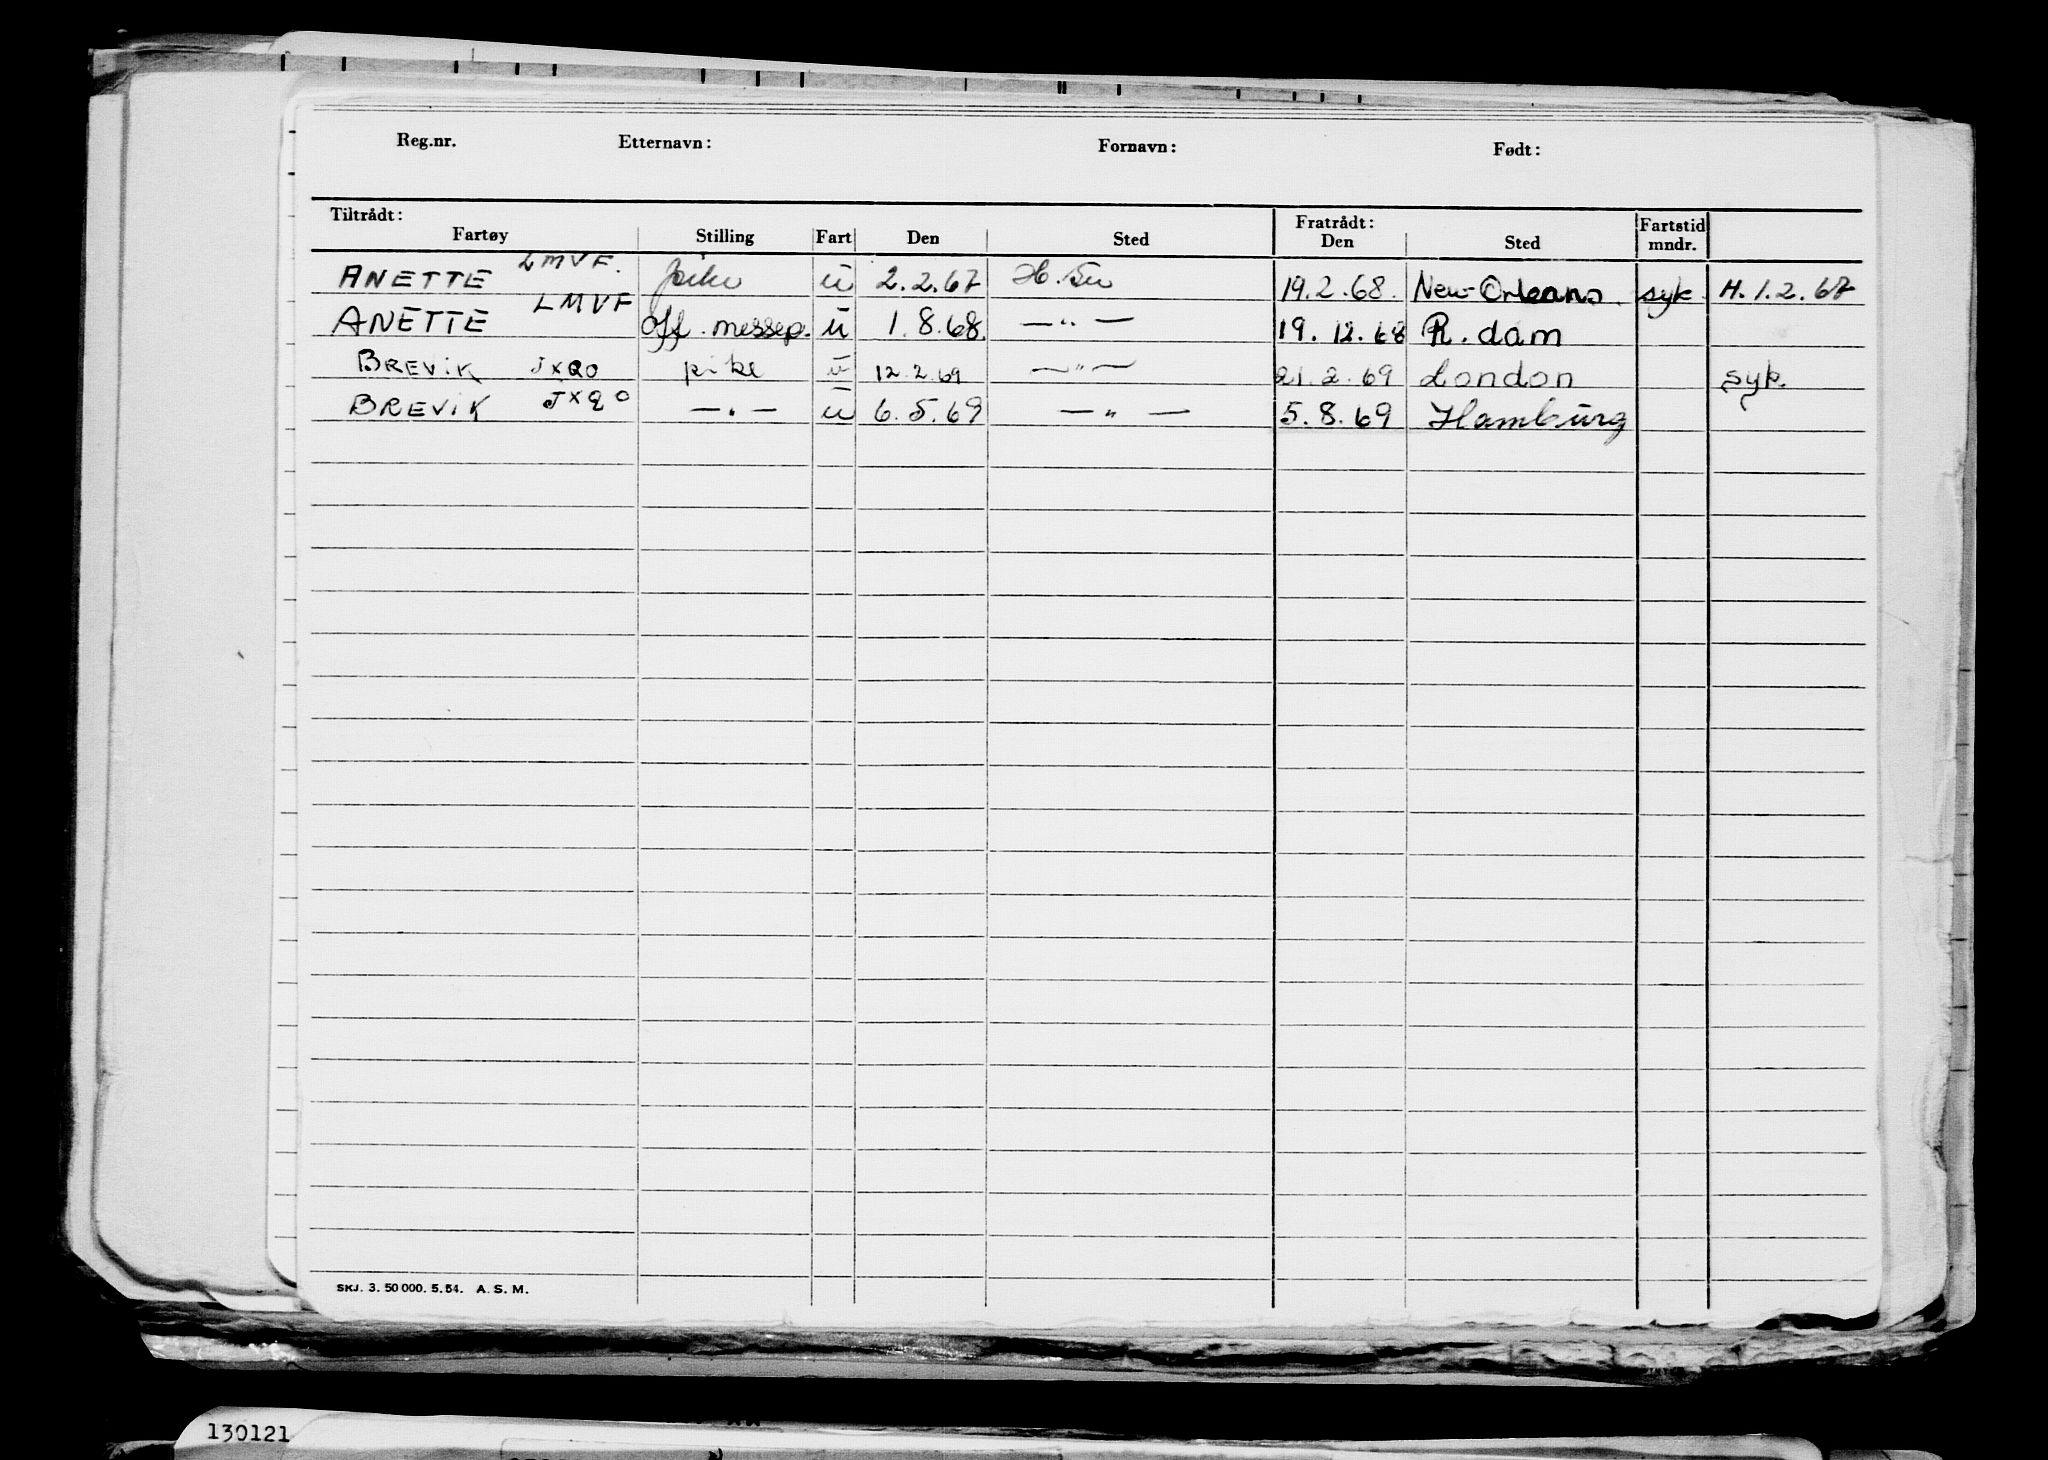 Reg.nr. Etternavn: Fornavn: Født:
Tiltrådt: Fratrådt: Fartstid
Fartøy Stilling Fart Den Sted Den Sted mndr.
ANETTE LMVF. pike u 2.2.67 19.2.68. New-Orleans. syk H.1.2.67
ANETTE LMVF off. messep. u 1.8.68. —„— 19.12.68 R.dam
BREVIK JXQO pike u 12.2.69 —„— 21.2.69 London syk.
BREVIK JXQO —„— u 6.5.69 —„— 5.8.69 Hamburg
SKJ. 3. 50 000. 5.54. A. S. M.
130121